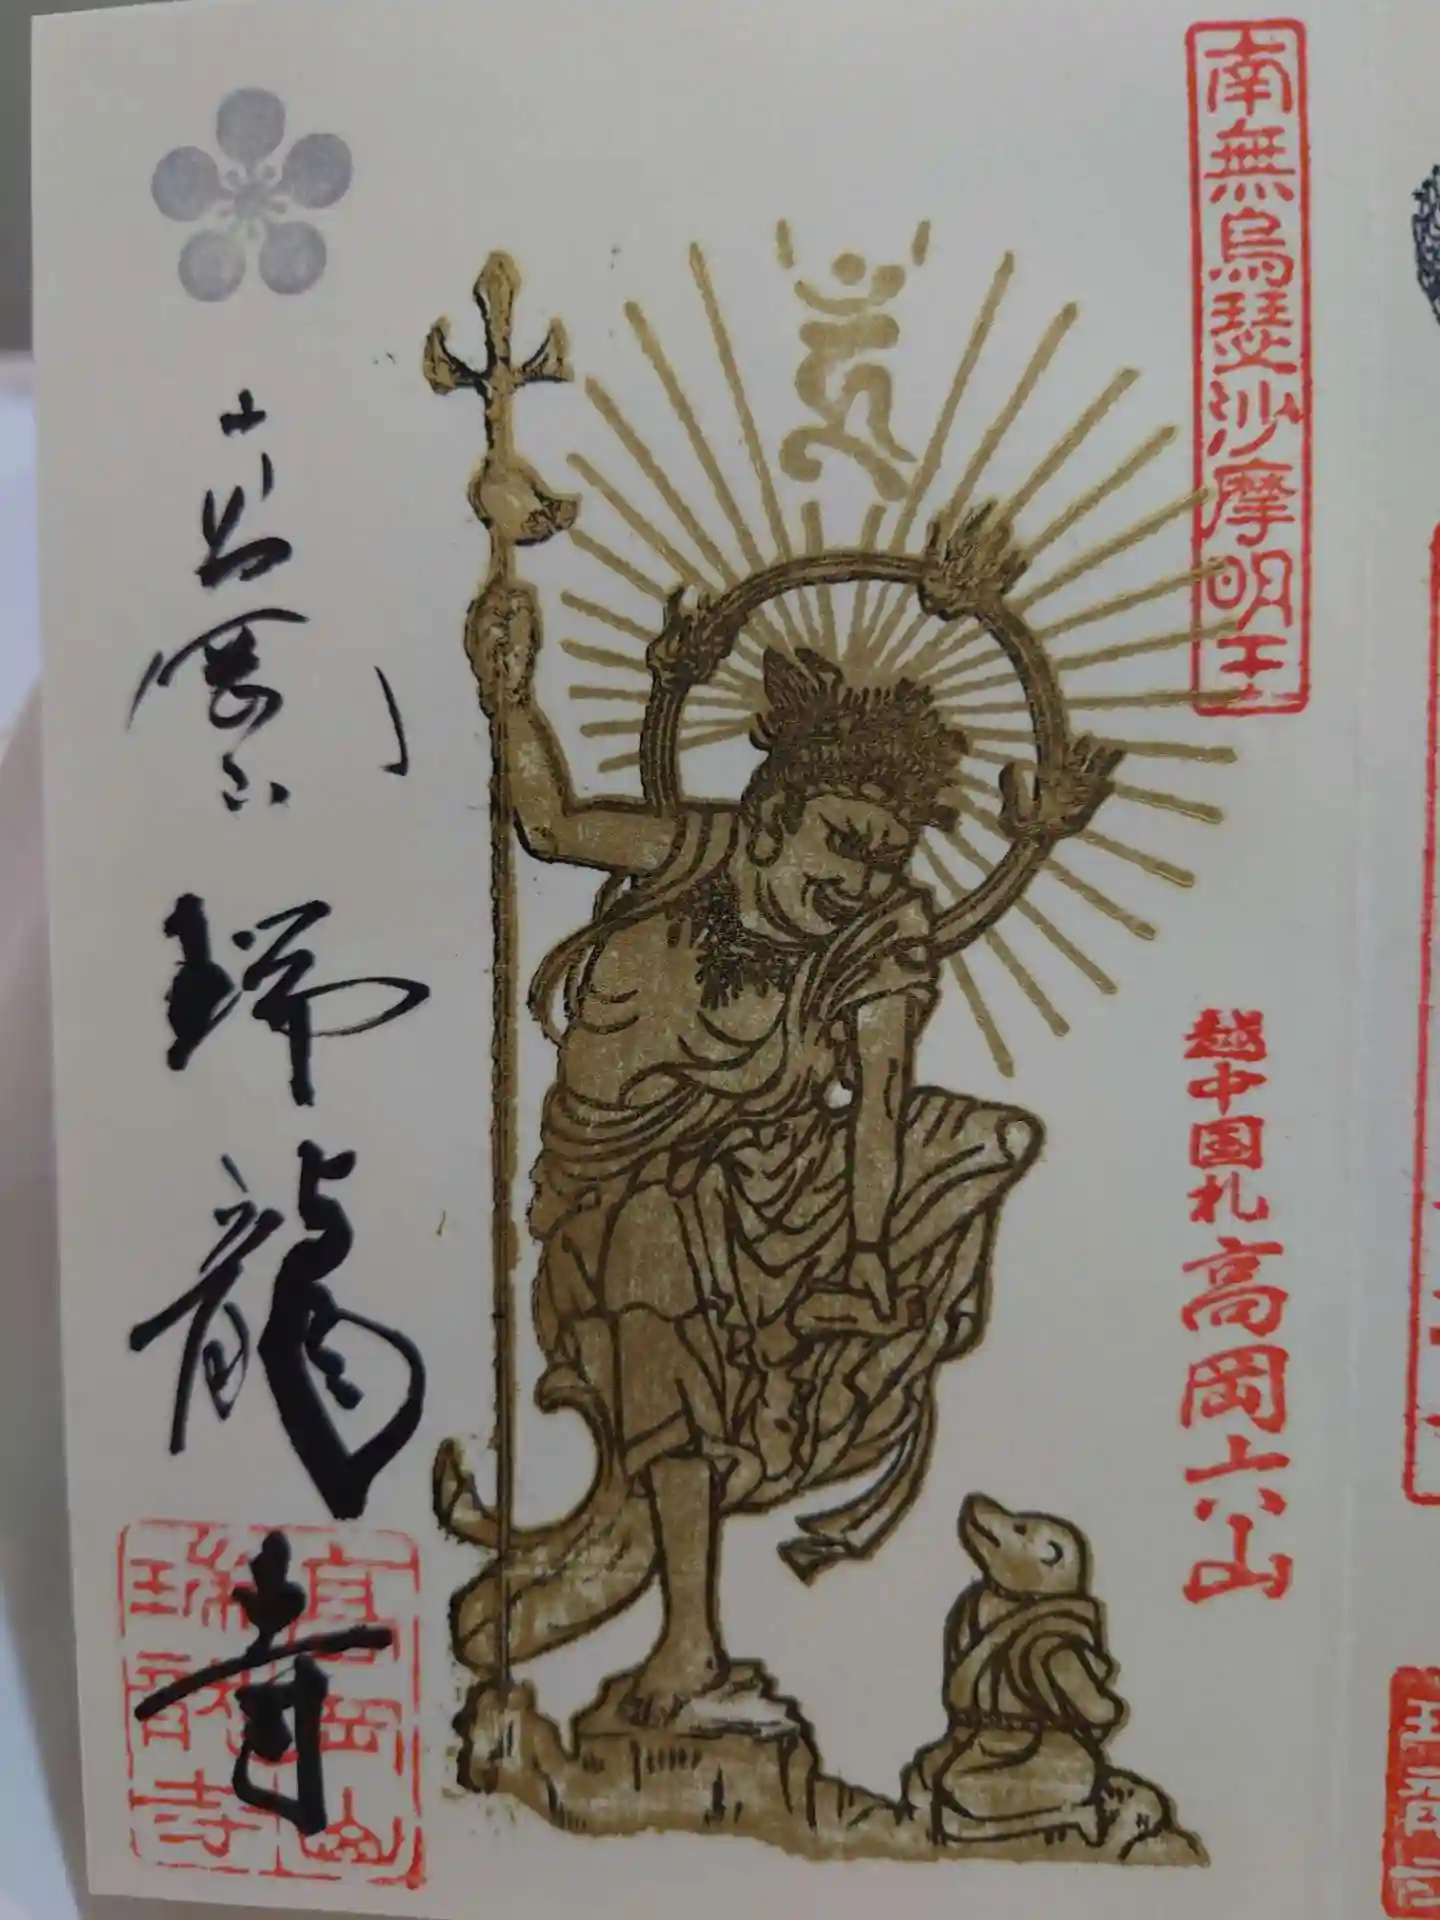 南無烏瑟沙摩明王
越中国札高岡六八山
高岡山
瑞龍寺
高岡山
瑞龍寺